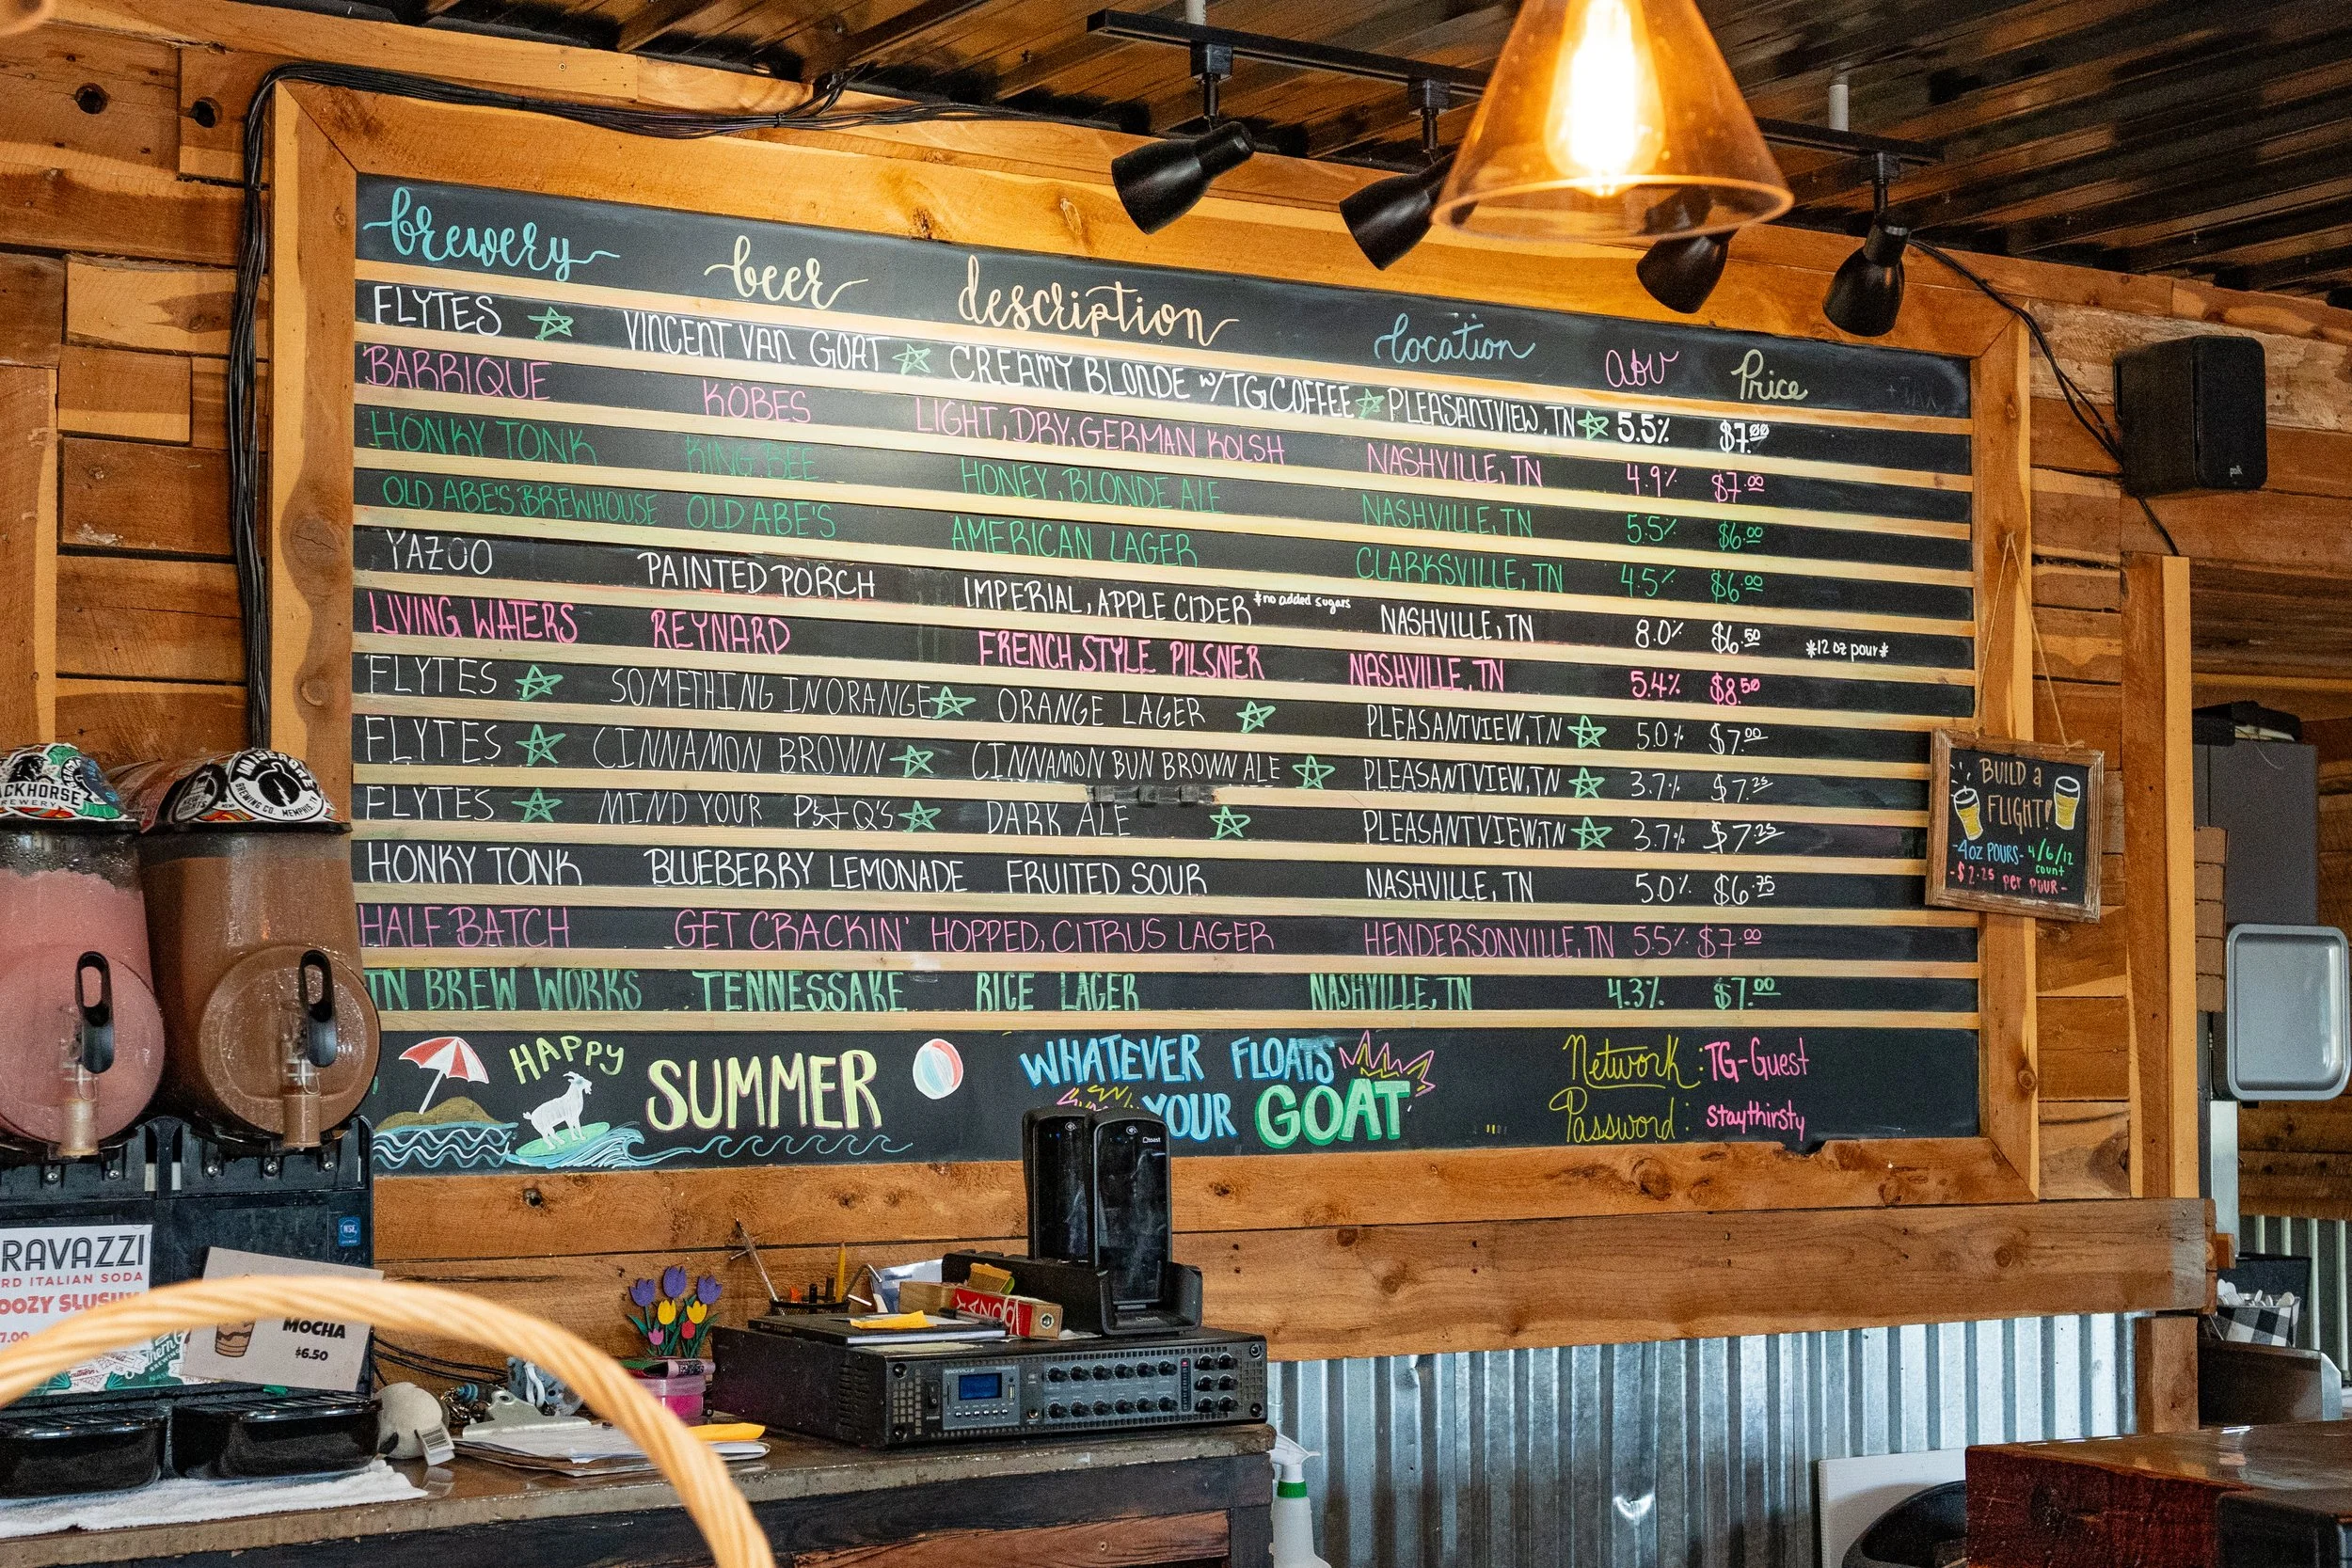 brewery beer description location abv Price + TAX
FLYTES VINCENT VAN GOAT CREAMY BLONDE w/TG COFFEE PLEASANTVIEW, TN 5.5% $7.00
BARRIQUE KÖBES LIGHT, DRY, GERMAN KOLSH NASHVILLE, TN 4.9% $7.00
HONKY TONK KING BEE HONEY, BLONDE ALE NASHVILLE, TN 5.5% $6.00
OLD ABE'S BREWHOUSE OLD ABE'S AMERICAN LAGER CLARKSVILLE, TN 4.5% $6.00
YAZOO PAINTED PORCH IMPERIAL, APPLE CIDER *no added sugars NASHVILLE, TN 8.0% $6.50 *12 oz pour*
LIVING WATERS REYNARD FRENCH STYLE PILSNER NASHVILLE, TN 5.4% $8.50
FLYTES SOMETHING IN ORANGE ORANGE LAGER PLEASANTVIEW, TN 5.0% $7.00
FLYTES CINNAMON BROWN CINNAMON BUN BROWN ALE PLEASANTVIEW, TN 3.7% $7.25
FLYTES MIND YOUR P's + Q's DARK ALE PLEASANTVIEW, TN 3.7% $7.25
HONKY TONK BLUEBERRY LEMONADE FRUITED SOUR NASHVILLE, TN 5.0% $6.75
HALF BATCH GET CRACKIN' HOPPED, CITRUS LAGER HENDERSONVILLE, TN 5.5% $7.00
TN BREW WORKS TENNESSAKE RICE LAGER NASHVILLE, TN 4.3% $7.00
HAPPY SUMMER
WHATEVER FLOATS
YOUR GOAT
Network: TG-Guest
Password: staythirsty
BUILD a
FLIGHT!
-4oz POURS- 4/6/12
count
-$2.25 per pour-
ACKHORSE
BREWERY
BREWING CO. MEMPHIS, TN
RAVAZZI
RD ITALIAN SODA
OOZY SLUSHY
7.00
MOCHA
$6.50
toast
polk
NSF